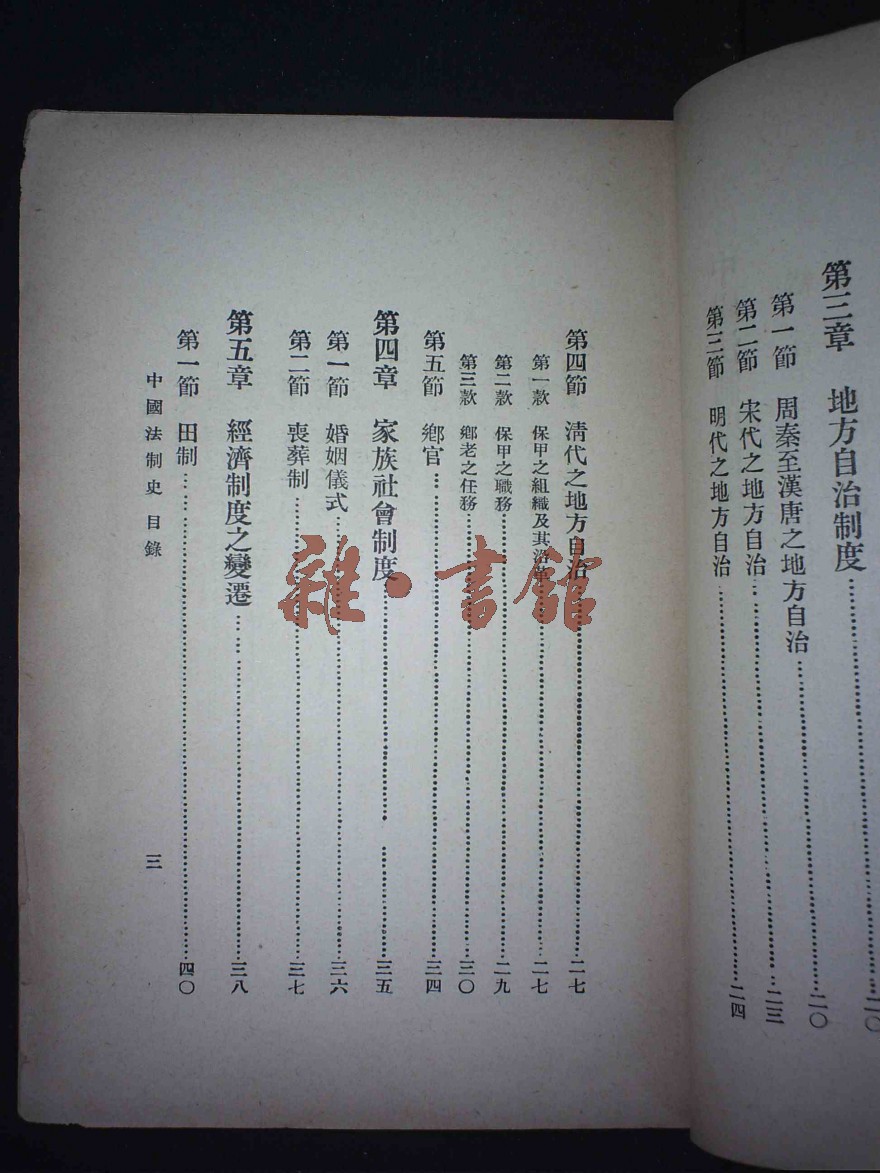 第三章　地方自治制度……二〇
第一節　周秦至漢唐之地方自治……二〇
第二節　宋代之地方自治……二三
第三節　明代之地方自治……二四
第四節　淸代之地方自治……二七
第一款　保甲之組織及其沿革……二七
第二款　保甲之職務……二九
第三款　鄉老之任務……三〇
第五節　鄉官……三四
第四章　家族社會制度……三五
第一節　婚姻儀式……三六
第二節　喪葬制……三七
第五章　經濟制度之變遷……三八
第一節　田制……四〇
中國法制史　目錄
三
雜·書館